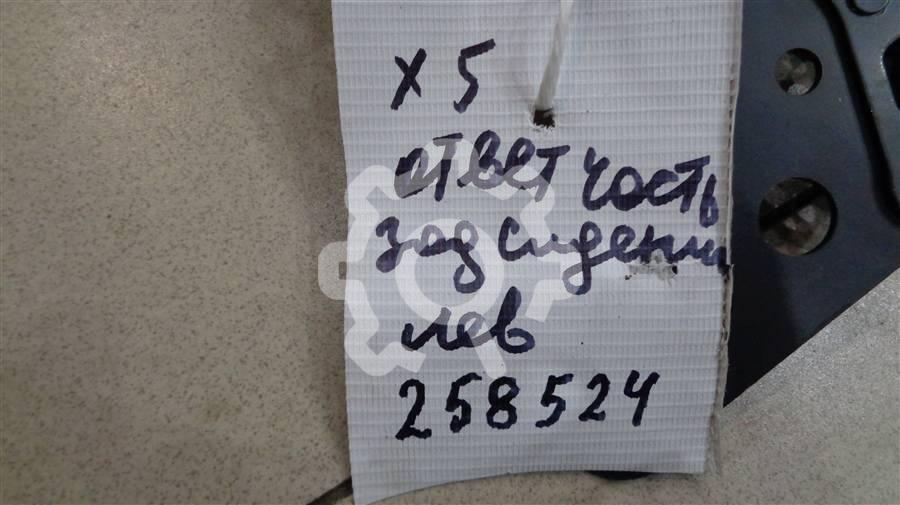 X 5
ответ часть
зад сидении
лев
258524